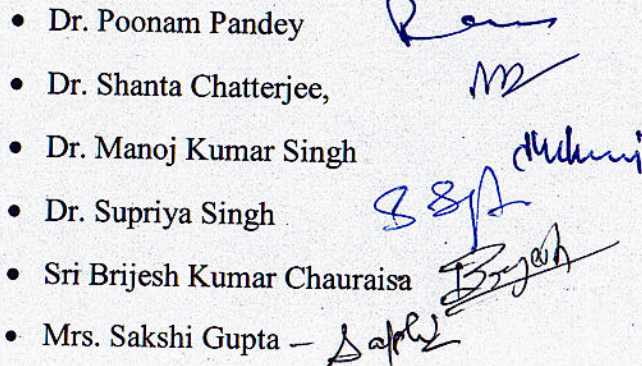 • Dr. Poonam Pandey
• Dr. Shanta Chatterjee,
• Dr. Manoj Kumar Singh
• Dr. Supriya Singh
• Sri Brijesh Kumar Chauraisa Brijesh
• Mrs. Sakshi Gupta –